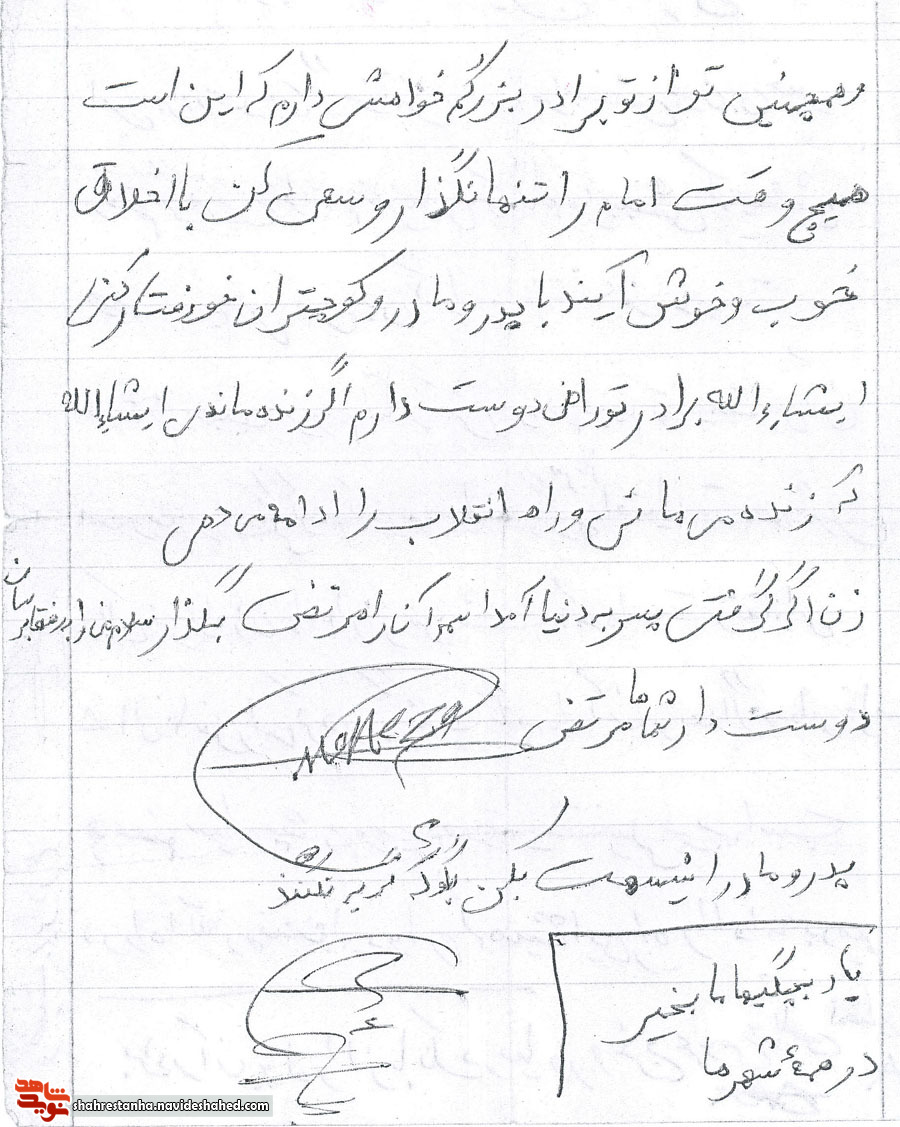 و همچنین تو از تو برادر بزرگم خواهش دارم که این است
هیچ وقت امام را تنها نگذار و سعی کن با اخلاق
خوب و خوش آیند با پدر و مادر و کوچیتران خود رفتار کنی
ایشاءالله برادر تو را خیلی دوست دارم اگر زنده ماندی ایشاءالله
که زنده می مانی و راه انقلاب را ادامه می دهی
زن اگر گرفتی پسر به دنیا آمد اسم آن را مرتضی بگذار سلام من را به رفقا برسان
دوست دار شماها مرتضی
پدر و مادر را نصیحت بکن بگو که گریه نکنند
یاد بچگیها ما بخیر
در همهٔ شهر ما
نوید شاهد
shahrestanha.navideshahed.com